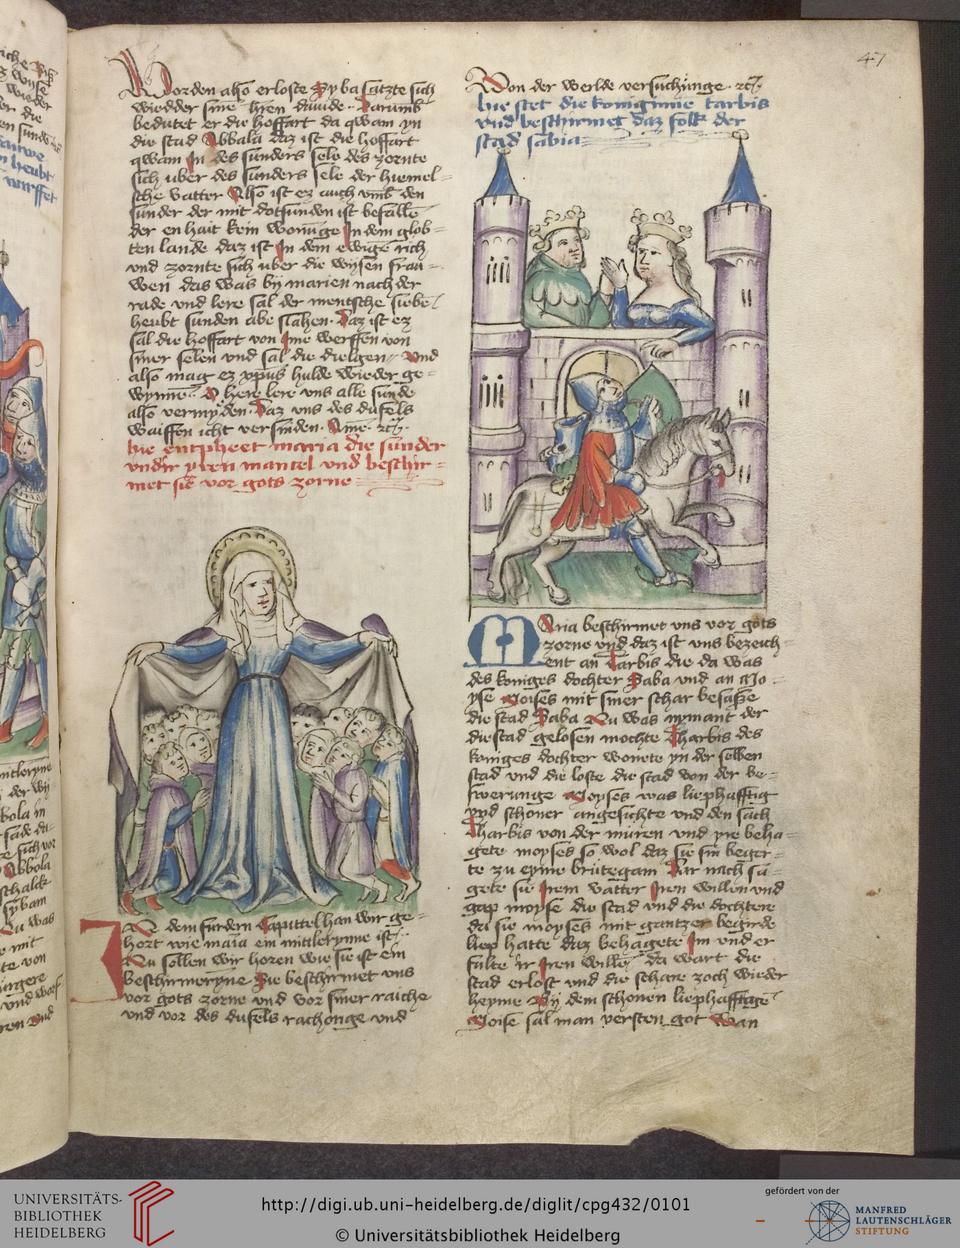 47
Worden also erloste Syba satzte sich
wiedder sine hren dauide. Darumb
bedutet er die hoffart da qwam yn
die stad Abbala daz ist die hoffart
qwam In des sunders sele des zornte
sich uber des sunders sele der hiemel-
sche vatter Also ist ez auch vmb den
sunder der mit dotsunden ist befalle
der en hait kein wonuge In dem glob-
ten lande daz ist In dem ewige rich
vnd zornte sich uber die wysen frau-
wen das was by marien nach der
rade vnd lere sal der mentsche siebe
heubt sunden abe slahen. Daz ist er
sal die hoffart von Ime werffen von
siner selen vnd sal die dielgen. Vnd
also mag ez xpus hulde wieder ge-
wynne. O here lere vns alle sunde
also vermyden. Daz vns des dufels
waiffen icht versinden. Ame. etc.
hie entpheet maria die sunder
vndir yren mantel vnd beschir-
met sie vor gots zorne
IN dem furdern Capittel han wir ge-
hort wie maria ein mittlerynne ist.
Nu sollen wir horen wie sie ist ein
beschermeryne Sie beschirmet uns
vor gots zorne vnd vor siner raiche
vnd vor des dufels rachonge vnd
Von der werlde versuchunge. etc.
hie stet die koniginne tarbis
vnd beschirmet daz folk der
stad sabia
MAria beschirmet vns vor gots
zorne vnd daz ist uns bezeich-
ent an Tarbis die da was
des koniges dochter Saba vnd an Mo-
yse Moises mit siner schar besasse
die stad Saba Nu was nymant der
die stad gelosen mochte Tharbis des
koniges dochter wonete yn der selben
stad vnd die loste die stad von der be-
swerunge Moyses was liephafftig
vnd schoner angesichte vnd den sach
Tharbis von der muren vnd yre beha-
gete moyses so wol daz sie sin beger-
te zu eyme brutegam Dar nach sa-
gete sie Irem vatter Iren willen vnd
gap moyse die stad vnd die dochtere
da sie moyses mit gantzer begirde
liep hatte daz behagete Im vnd er
fulte ir Iren wille da wart die
stad erlost vnd die schare zoch wieder
heyme By dem schonen liephafftige
Moise sal man versten got Wan
UNIVERSITÄTS-
BIBLIOTHEK
HEIDELBERG
http://digi.ub.uni-heidelberg.de/diglit/cpg432/0101
© Universitätsbibliothek Heidelberg
gefördert von der
MANFRED
LAUTENSCHLÄGER
STIFTUNG